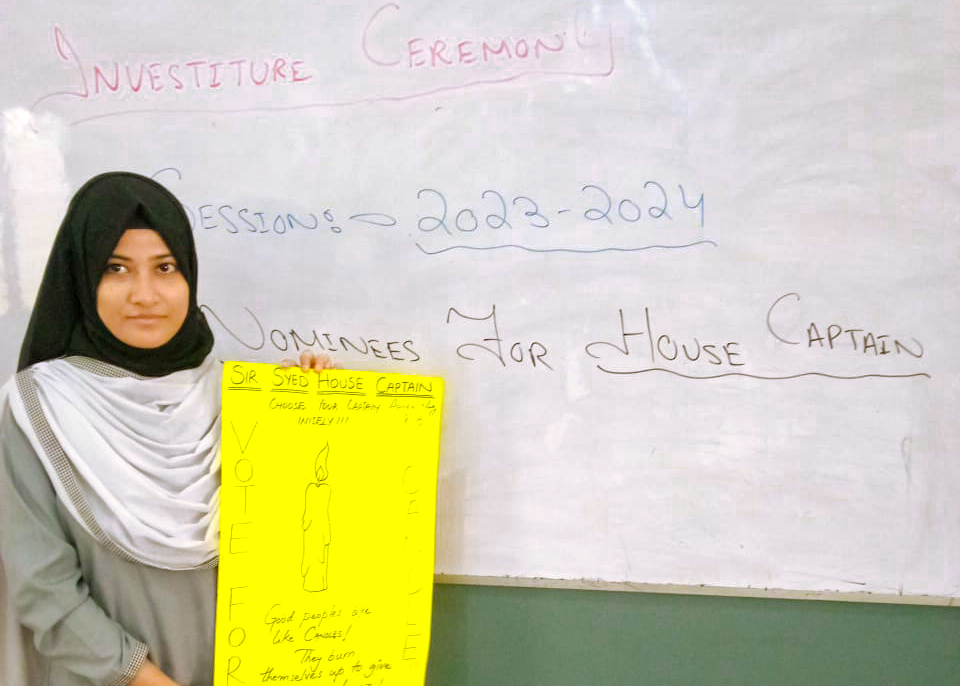 INVESTITURE CEREMONY
SESSION:- 2023-2024
NOMINEES FOR HOUSE CAPTAIN
SIR SYED HOUSE CAPTAIN
CHOOSE YOUR CAPTAIN
WISELY!!!
VOTE FOR
CANDLE
Good peoples are
like CANDLES!
They burn
themselves up to give